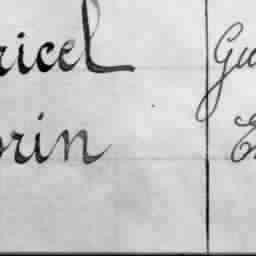 ricel Gu
orin E